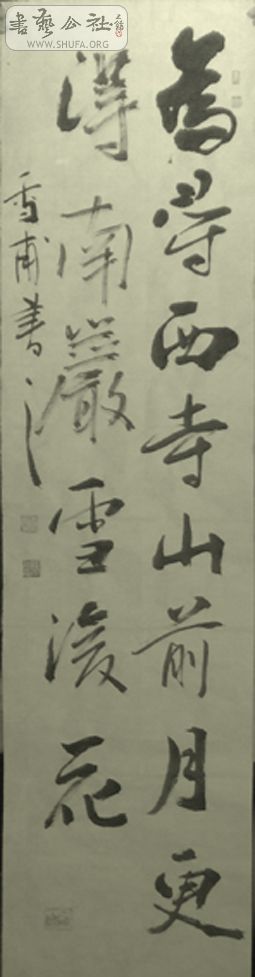 書藝公社
WWW.SHUFA.ORG
為尋西寺山前月更
得南巖雪後花
雪甫